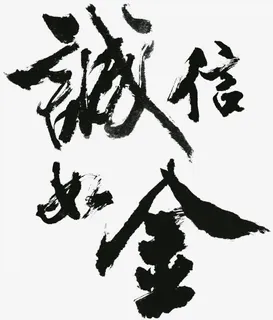 誠信
如金